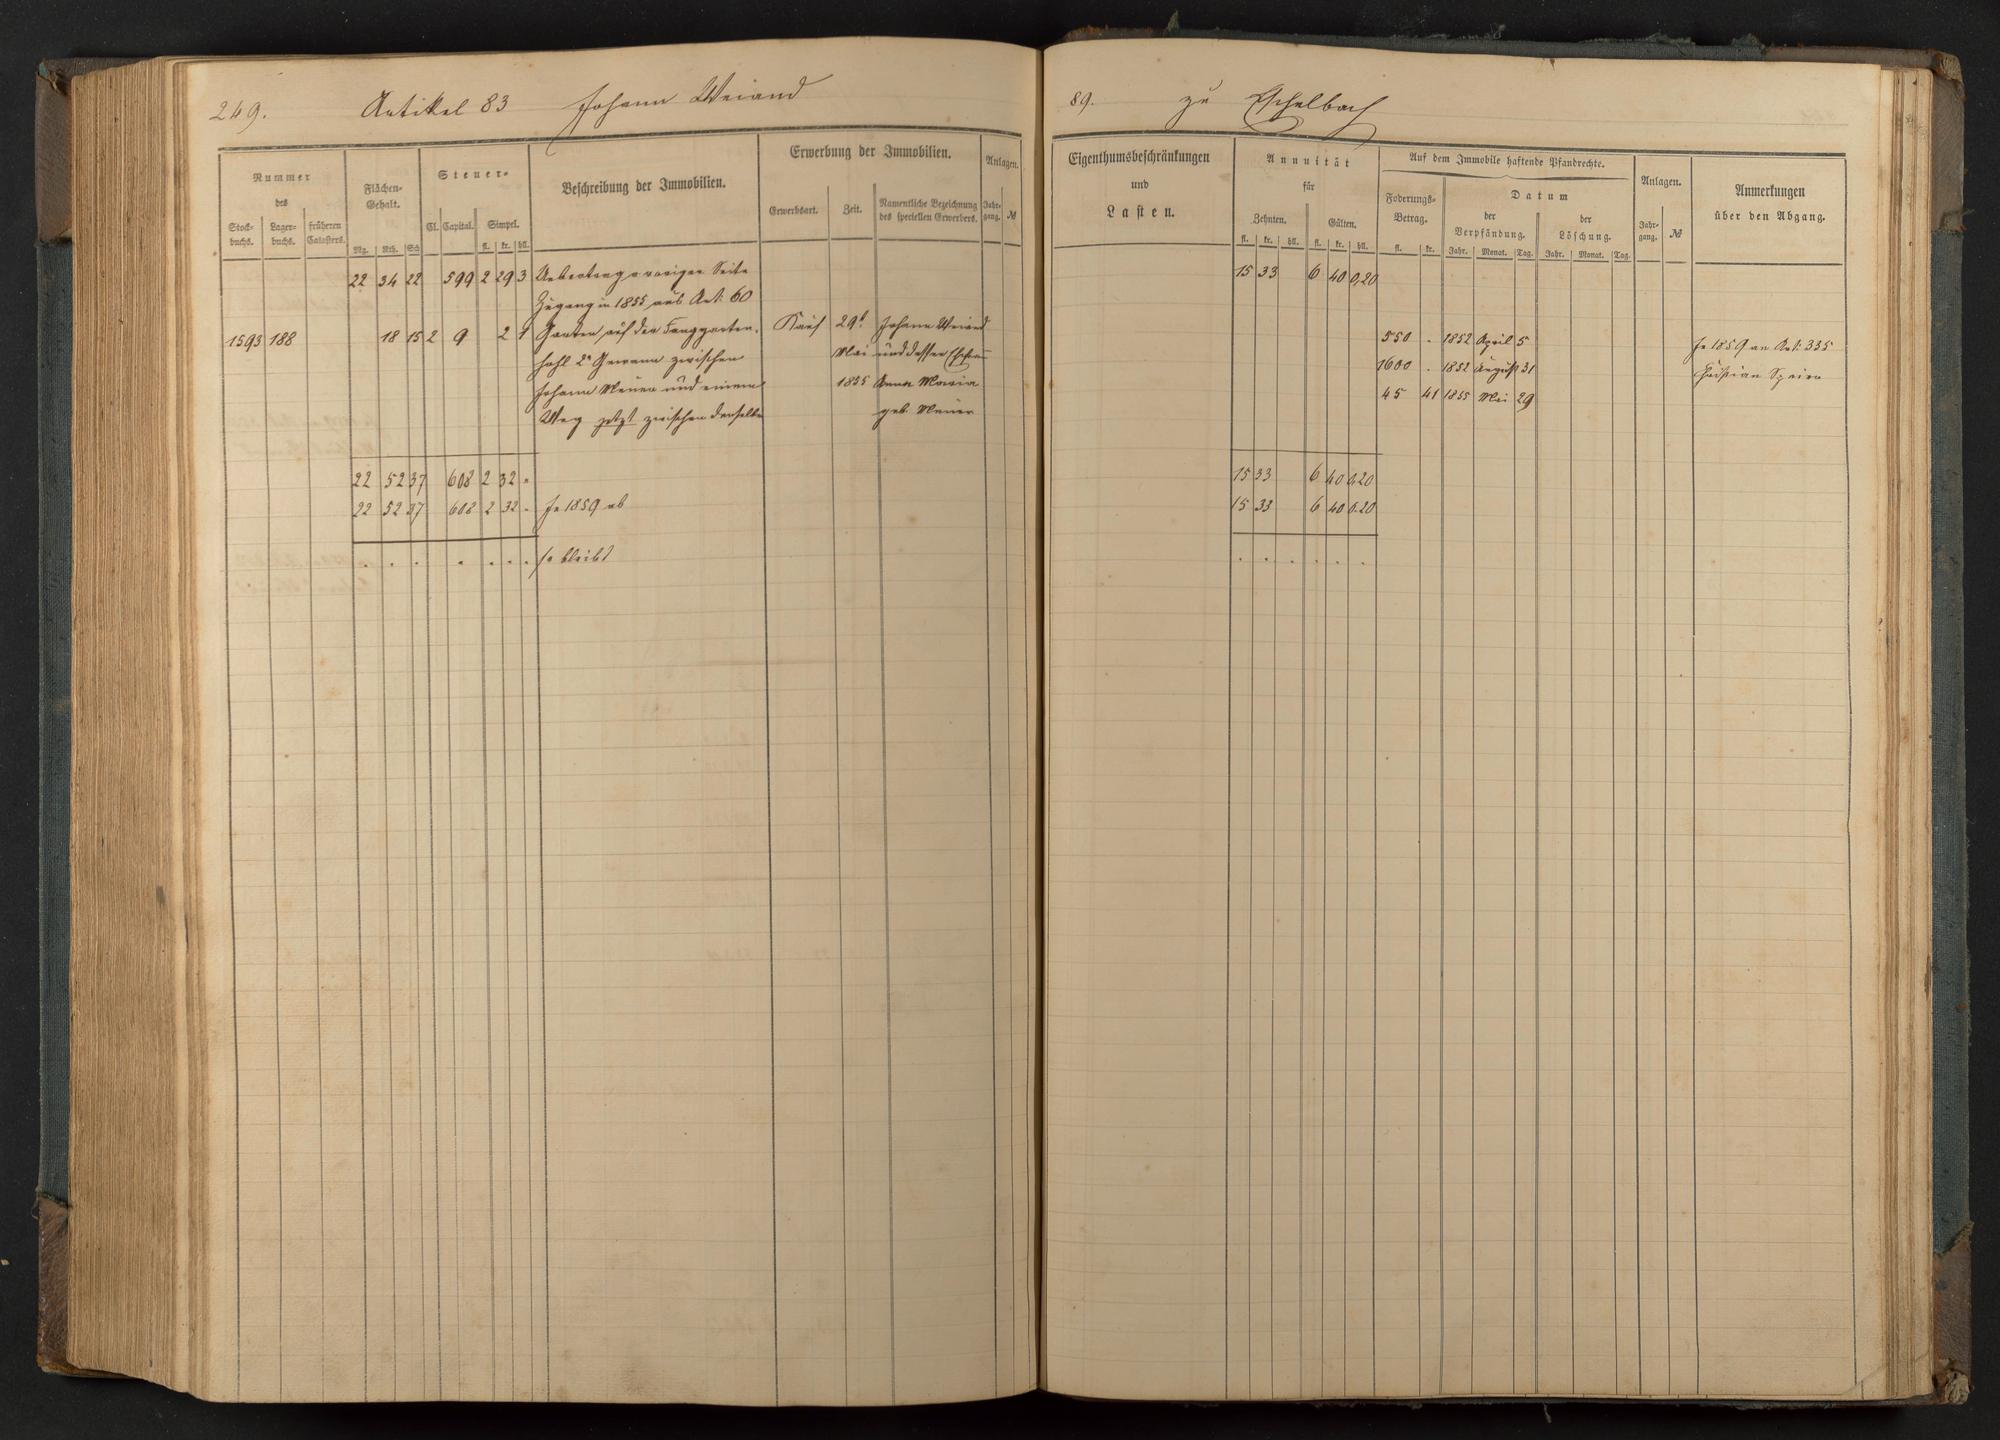 249. Artikel 83 Johann Weiand
Nummer des
Stock-buchs. Lager-buchs. früheren Catasters.
Flächen-Gehalt.
Mg. Rth. Sch
Steuer-
Cl. Capital. Simpel.
fl. kr. hll.
Beschreibung der Immobilien.
Erwerbung der Immobilien.
Erwerbsart. Zeit. Namentliche Bezeichnung des speciellen Erwerbers.
Anlagen.
Jahr-gang. №
22 34 22 599 2 29 3 Uebertrag voriger Seite
Zugang in 1855 aus Art: 60
1593 188 18 15 2 9 2 1 Garten auf der
hohl 2r Gewann zwischen
Johann Meurer und einem
Weg jetzt zwischen denselben
Kauf 29t Johann Weiand
Mai und dessen Ehefrau
1855 Anna Maria
geb. Meurer
22 52 37 608 2 32 -
22 52 37 608 2 32 - In 1859 ab
. . . . . . . so bleibt
89. zu Eschelbach
Eigenthumsbeschränkungen
und
Lasten.
Annuität
für
Zehnten. Gülten.
fl. kr. hll. fl. kr. hll.
Auf dem Immobile haftende Pfandrechte.
Foderungs-Betrag.
fl. kr.
Datum
der Verpfändung. der Löschung.
Jahr. Monat. Tag. Jahr. Monat. Tag.
Anlagen.
Jahr-gang. №
Anmerkungen
über den Abgang.
15 33 6 40 0,20
550 . 1852 April 5 In 1859 an Art: 335
1600 . 1852 August 31 Christian
45 41 1855 Mai 29
15 33 6 40 0.20
15 33 6 40 0.20
. . . . . .